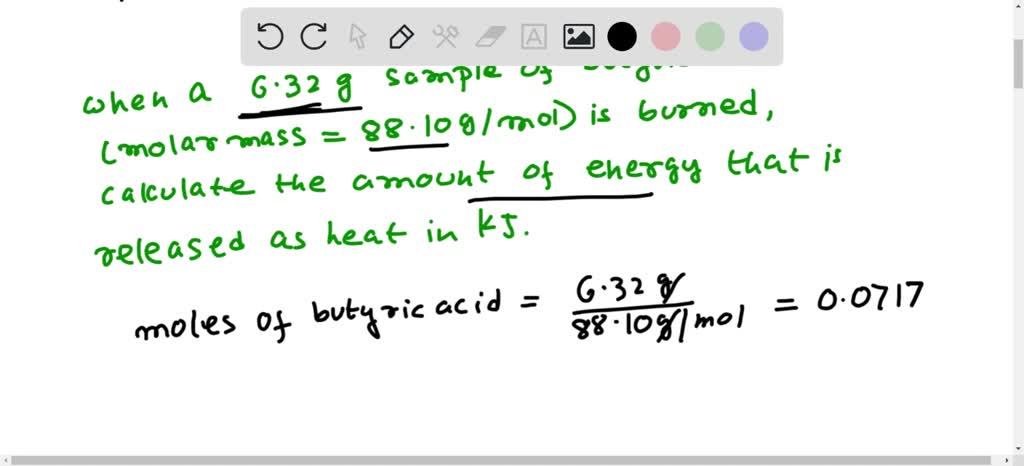 when a 6.32 g sample of
(molar mass = 88.10 g/mol) is burned,
calculate the amount of energy that is
released as heat in kJ.
moles of butyric acid = 6.32 g / 88.10 g/mol = 0.0717